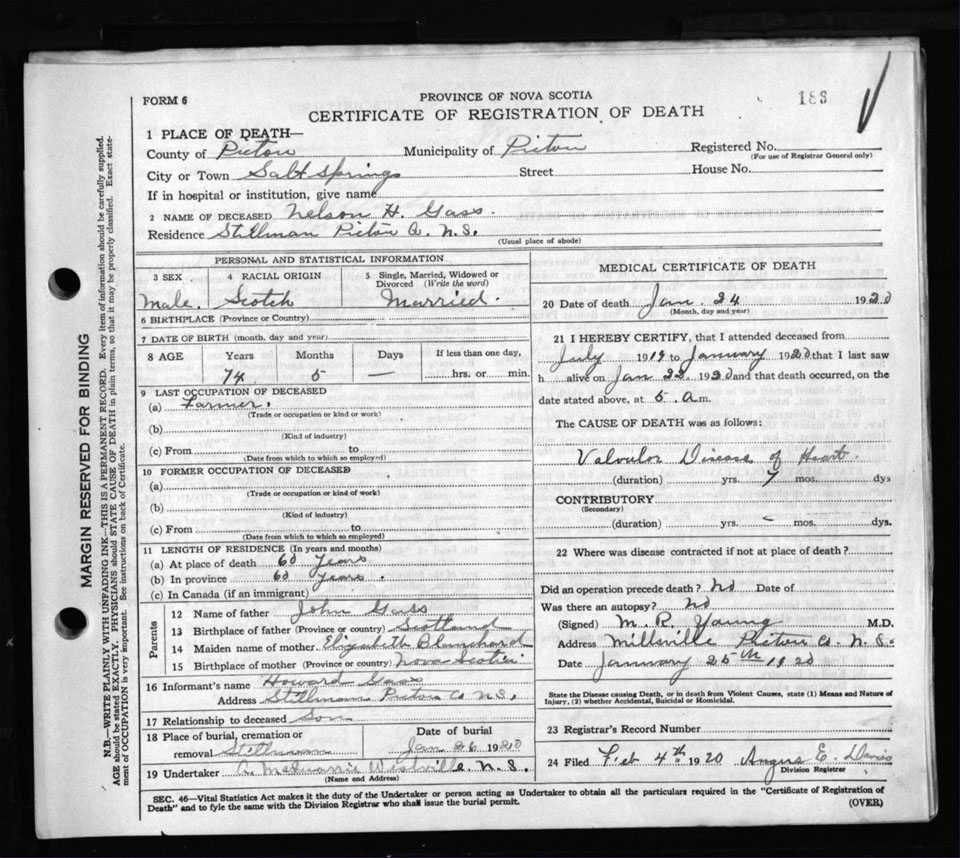 FORM 6
PROVINCE OF NOVA SCOTIA
183
CERTIFICATE OF REGISTRATION OF DEATH
1 PLACE OF DEATH—
County of Pictou Municipality of Pictou Registered No.
(For use of Registrar General only)
City or Town Salt Springs Street House No.
If in hospital or institution, give name
2 NAME OF DECEASED Nelson H. Gass.
Residence Stillman Pictou Co. N.S.
(Usual place of abode)
PERSONAL AND STATISTICAL INFORMATION
3 SEX 4 RACIAL ORIGIN 5 Single, Married, Widowed or Divorced (Write the word)
Male. Scotch Married.
6 BIRTHPLACE (Province or Country)
7 DATE OF BIRTH (month, day and year)
8 AGE Years Months Days If less than one day,
74 5 — hrs. or min.
9 LAST OCCUPATION OF DECEASED
(a) Farmer.
(Trade or occupation or kind or work)
(b)
(Kind of industry)
(c) From to
(Date from which to which so employed)
10 FORMER OCCUPATION OF DECEASED
(a)
(Trade or occupation or kind of work)
(b)
(Kind of industry)
(c) From to
(Date from which to which so employed)
11 LENGTH OF RESIDENCE (In years and months)
(a) At place of death 60 years
(b) In province 60 years.
(c) In Canada (if an immigrant)
Parents
12 Name of father John Gass
13 Birthplace of father (Province or country) Scotland
14 Maiden name of mother Elizabeth Blanchard
15 Birthplace of mother (Province or country) Nova Scotia
16 Informant's name Howard Gass
Address Stillman Pictou Co N.S.
17 Relationship to deceased Son
18 Place of burial, cremation or Date of burial
removal Stillman Jan 26 1920
19 Undertaker A. McQuarrie Westville. N.S.
(Name and Address)
MEDICAL CERTIFICATE OF DEATH
20 Date of death Jan. 24 1920
(Month, day and year)
21 I HEREBY CERTIFY, that I attended deceased from
July 1919 to January 1920 that I last saw
h alive on Jan 22 1920 and that death occurred, on the
date stated above, at 5 a m.
The CAUSE OF DEATH was as follows:
Valvular Disease of Heart.
(duration) yrs. 7 mos. dys
CONTRIBUTORY
(Secondary)
(duration) yrs. mos. dys.
22 Where was disease contracted if not at place of death?
Did an operation precede death? No Date of
Was there an autopsy? No
(Signed) M. R. Young M.D.
Address Millville Pictou Co. N.S.
Date January 25th 1920
State the Disease causing Death, or in death from Violent Causes, state (1) Means and Nature of
Injury, (2) whether Accidental, Suicidal or Homicidal.
23 Registrar's Record Number
24 Filed Feb 4th 1920 Angus E. Davis
Division Registrar
SEC. 46—Vital Statistics Act makes it the duty of the Undertaker or person acting as Undertaker to obtain all the particulars required in the "Certificate of Registration of
Death" and to fyle the same with the Division Registrar who shall issue the burial permit.
(OVER)
MARGIN RESERVED FOR BINDING
N.B.—WRITE PLAINLY WITH UNFADING INK—THIS IS A PERMANENT RECORD. Every item of information should be carefully supplied.
AGE should be stated EXACTLY. PHYSICIANS should STATE CAUSE OF DEATH in plain terms, so that it may be properly classified. Exact state-
ment of OCCUPATION is very important. See instructions on back of Certificate.